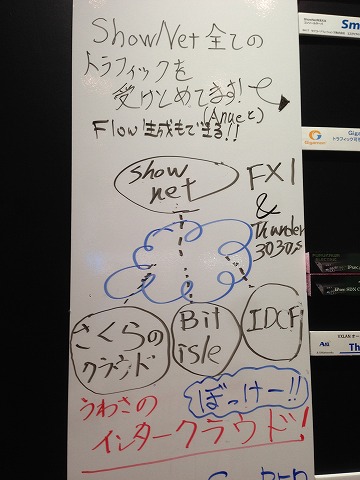 ShowNet 全ての
トラフィックを
受けとめてます!
(Anueと)
Flow 生成もできる!!
show
net
FX1
&
Thunder
3030s
さくらの
クラウド
Bit
isle
IDCF
ぼっけー!!
うわさの
インタークラウド!
Sm
Giga
Gigamon
トラフィック可
Th